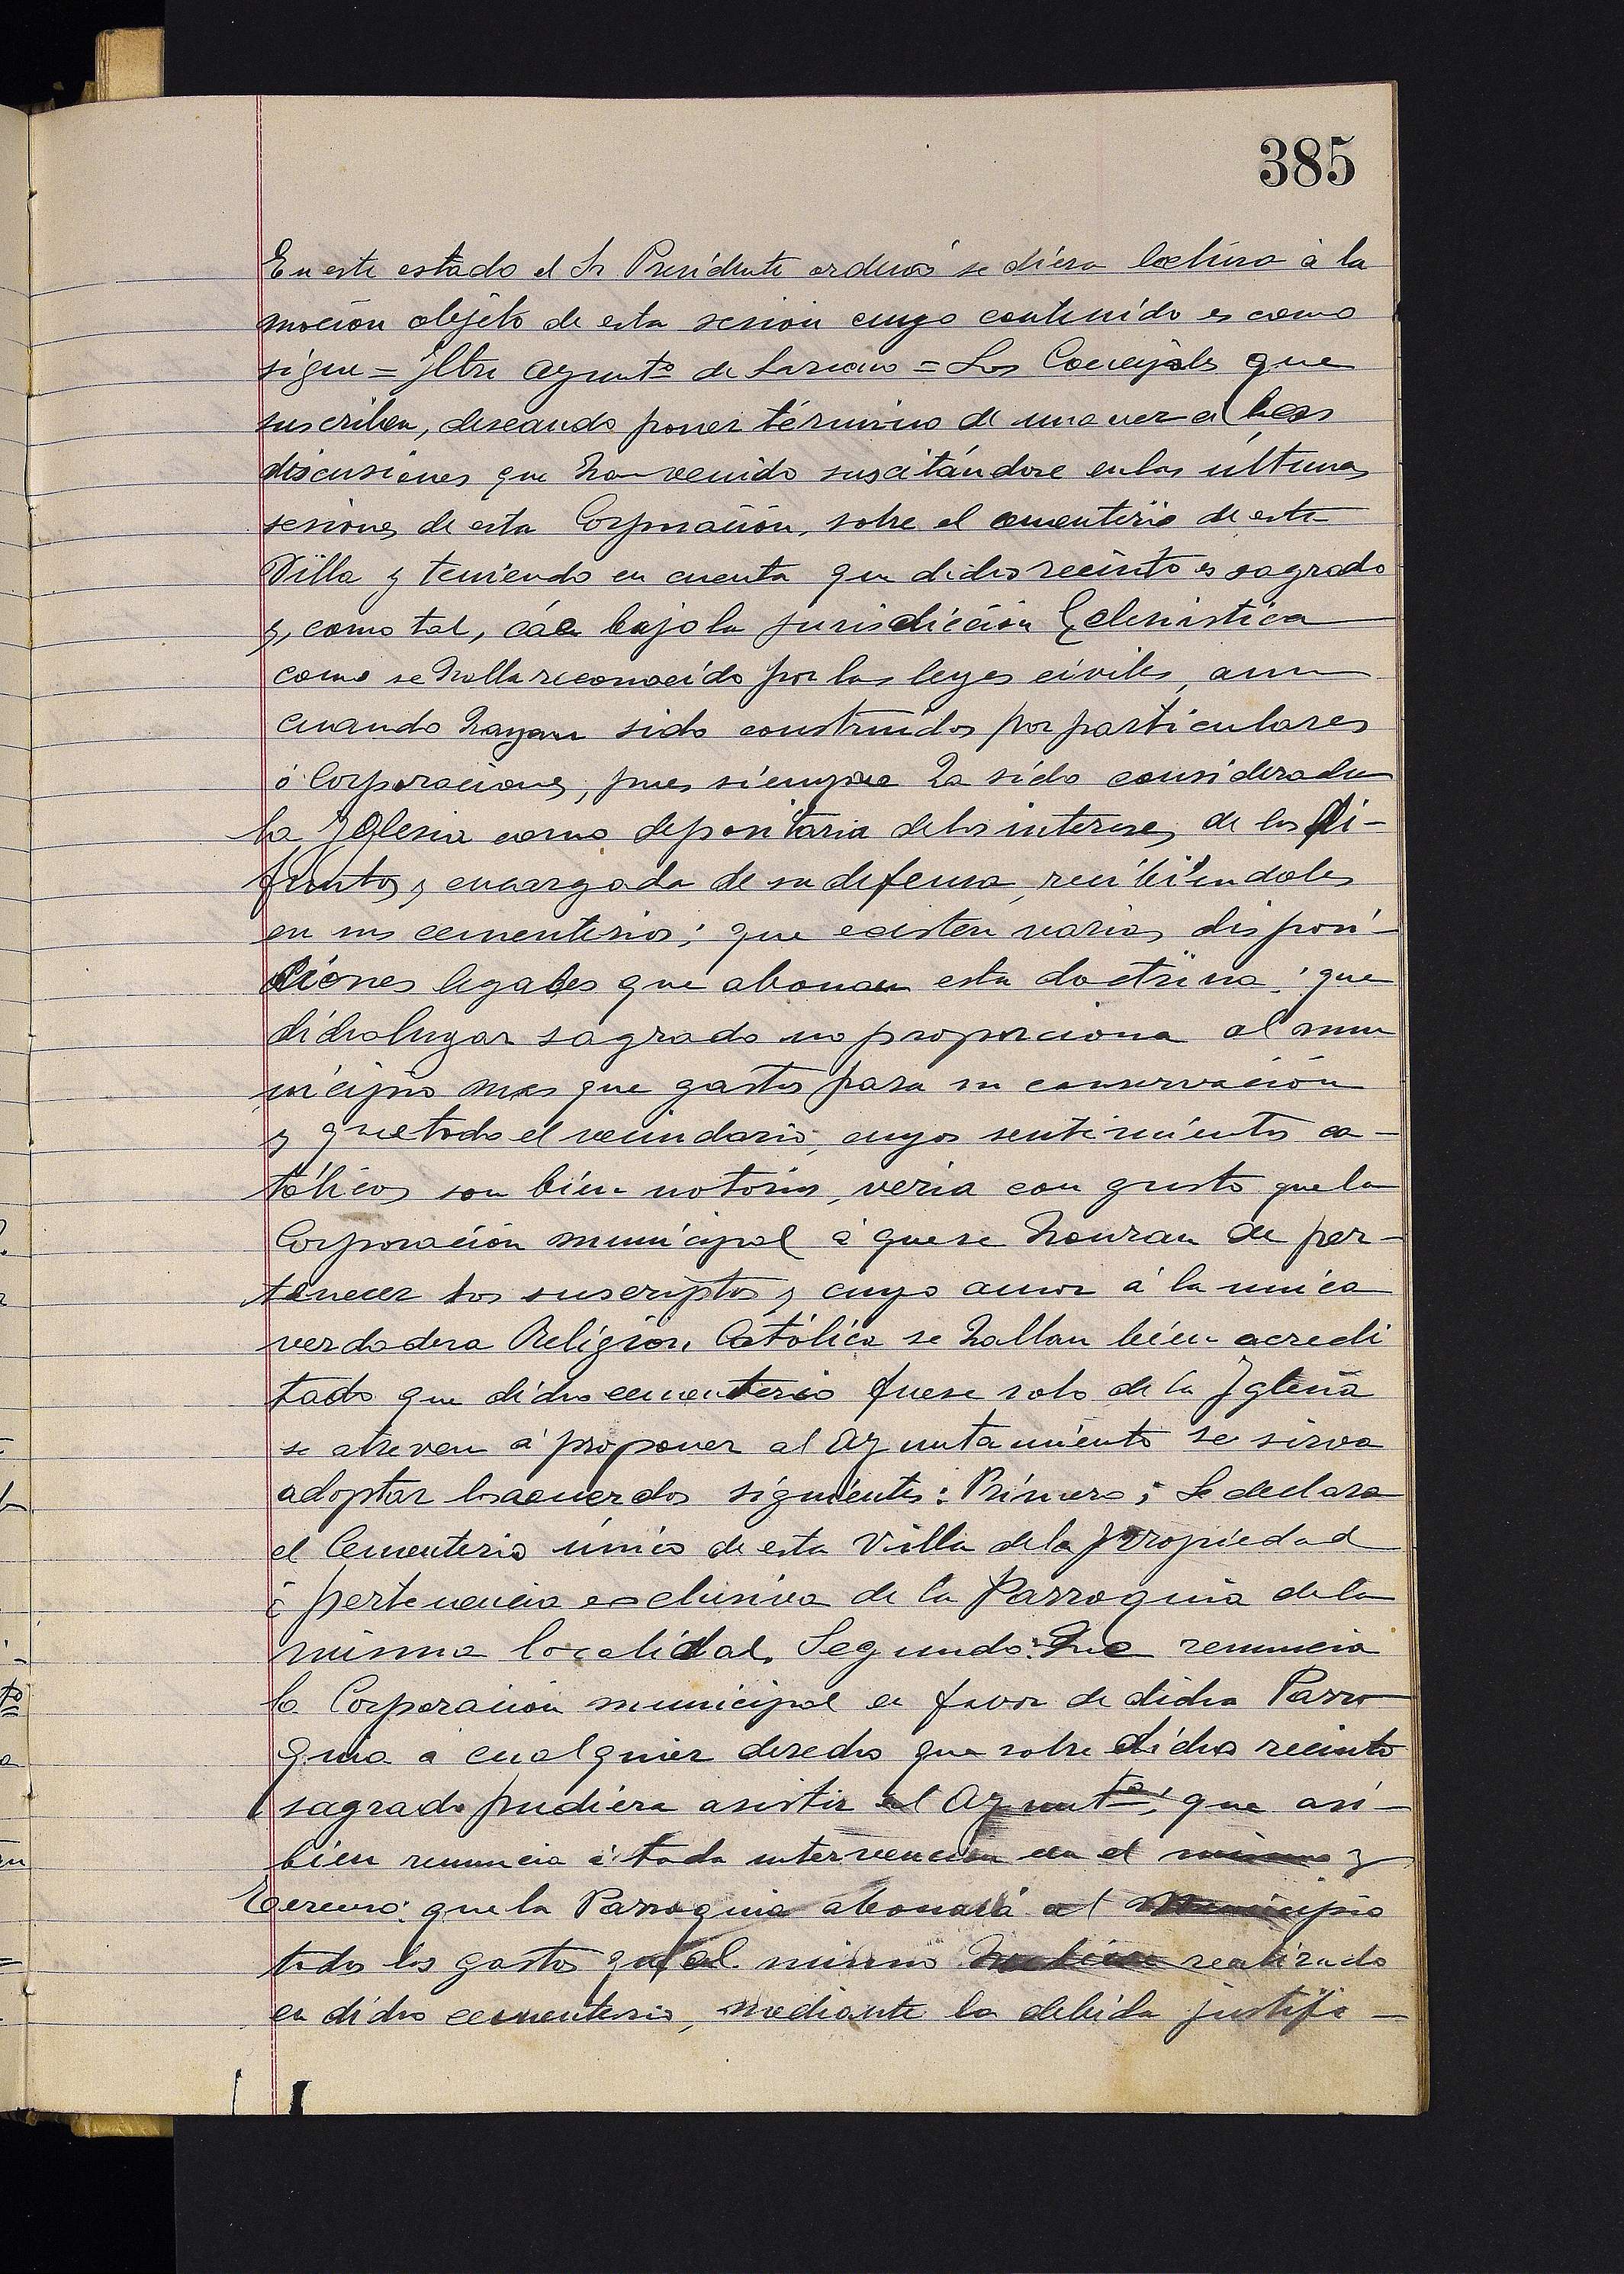 385
En este estado el Sr Presidente ordenó se diera lectura á la
moción objeto de esta sesion cuyo contenido es como
sigue = Iltre Ayuntº de Lazcano = Los Concejales que
suscriben, deseando poner término de una vez a las
discusiones que han venido suscitándose en las últimas
sesiones de esta Corporación, sobre el cementerio de esta
Villa y teniendo en cuenta que dicho recinto es sagrado
y, como tal, cáe bajo la jurisdicción Eclesiástica
como se halla reconocido por las leyes civiles, aun
cuando hayan sido construidos por particulares
ó Corporaciones, pues siempre ha sido considerada
la Iglesia como depositaria de los intereses de los di-
funtos y encargada de su defensa, recibiéndoles
en sus cementerios; que existen varias disposi-
ciones legales que abonan esta doctrina; que
dicho lugar sagrado no proporciona al mu
nicipio mas que gastos para su conservación
y que todo el vecindario, cuyos sentimientos ca-
tólicos son bien notorios, veria con gusto que la
Corporación municipal á que se honran de per-
tenecer los suscriptos y cuyo amor á la unica
verdadera Religion Católica se hallan bien acredi
tado que dicho cementerio fuese solo de la Iglesia
se atreven á proponer al Ayuntamiento se sirva
adoptar los acuerdos siguientes: Primero; Se declara
el Cementerio único de esta Villa de la propiedad
é pertenencia exclusiva de la Parroquia de la
misma localidad. Segundo: Que renuncia
la Corporación municipal en favor de dicha Parro
quia a cualquier derecho que sobre dicho recinto
sagrado pudiera asistir al Ayuntº; que asi-
bien renuncia á toda intervencion en el mismo y
Tercero: que la Parroquia abonará al Municipio
todos los gastos que el mismo hubiese realizado
en dicho cementerio, mediante la debida justifi-